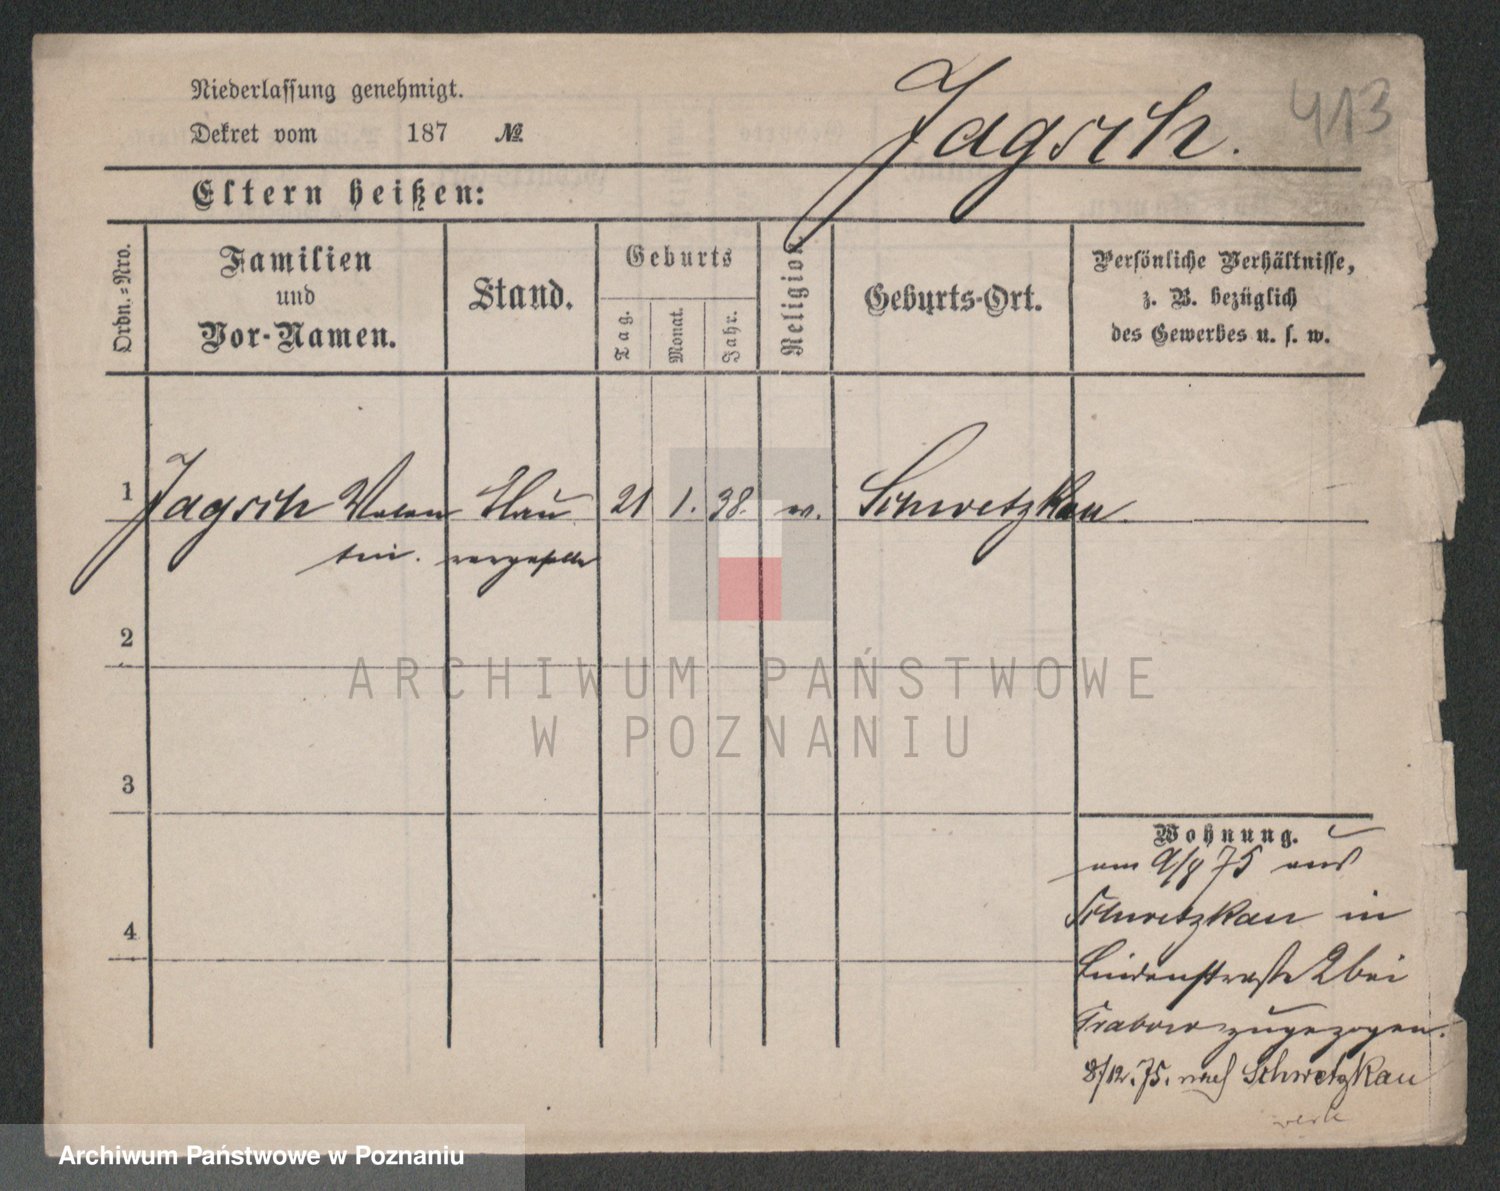 Niederlassung genehmigt.
Dekret vom 187 №
Jagsch.
413
Eltern heißen:
Ordn.-Nro.
Familien
und
Vor-Namen.
Stand.
Geburts
Tag.
Monat.
Jahr.
Religion.
Geburts-Ort.
Persönliche Verhältnisse,
z. B. bezüglich
des Gewerbes u. s. w.
1 Jagsch Valen Hau 21 1. 38. Schwetzkau
tin.
2
3
4
Wohnung.
am 9/9 75 aus
Schwetzkau in
Lindenstraße 2 bei
zugezogen.
8/12. 75. nach Schwetzkau
ARCHIWUM PAŃSTWOWE
W POZNANIU
Archiwum Państwowe w Poznaniu